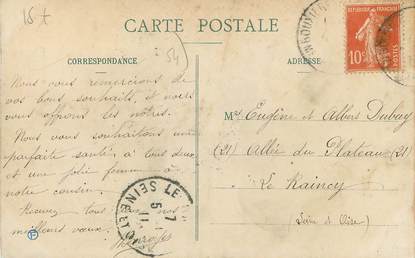 15 t
(54)
CARTE POSTALE
CORRESPONDANCE
ADRESSE
RÉPUBLIQUE FRANÇAISE
10c
POSTES
Nous vous remercions de
vos bons souhaits, et nous
vous offrons les nôtres.
Nous vous souhaitons une
parfaite santé à tous deux
et une jolie femme à
notre cousin.
Recevez tous nos
meilleurs vœux.
Mrs Eugène et Albert Dubuy
(21) Allée du Plateau (21)
Le Raincy
(Seine et Oise)
7
5
11
SEINE ET O